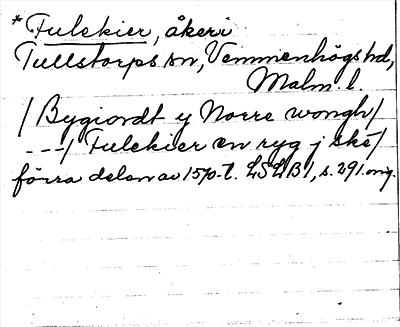 *Fulekier, åkeri
Tullstorps sn, Vemmenhögs hd,
Malm. l.
/Bygiordt y Norre wongh/
---/ Fulekier en ryg j ske/
förra delen av 1570-t. LSLB 1, s. 291. orig.